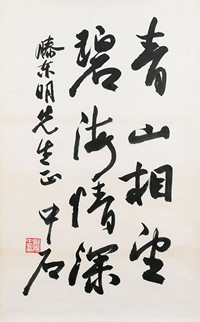 青山相望
碧海情深
滕东明先生正
中石